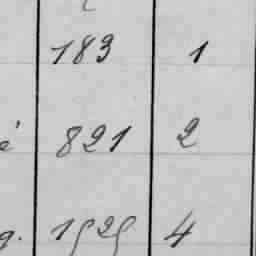 183 1
é 821 2
g. 1525 4